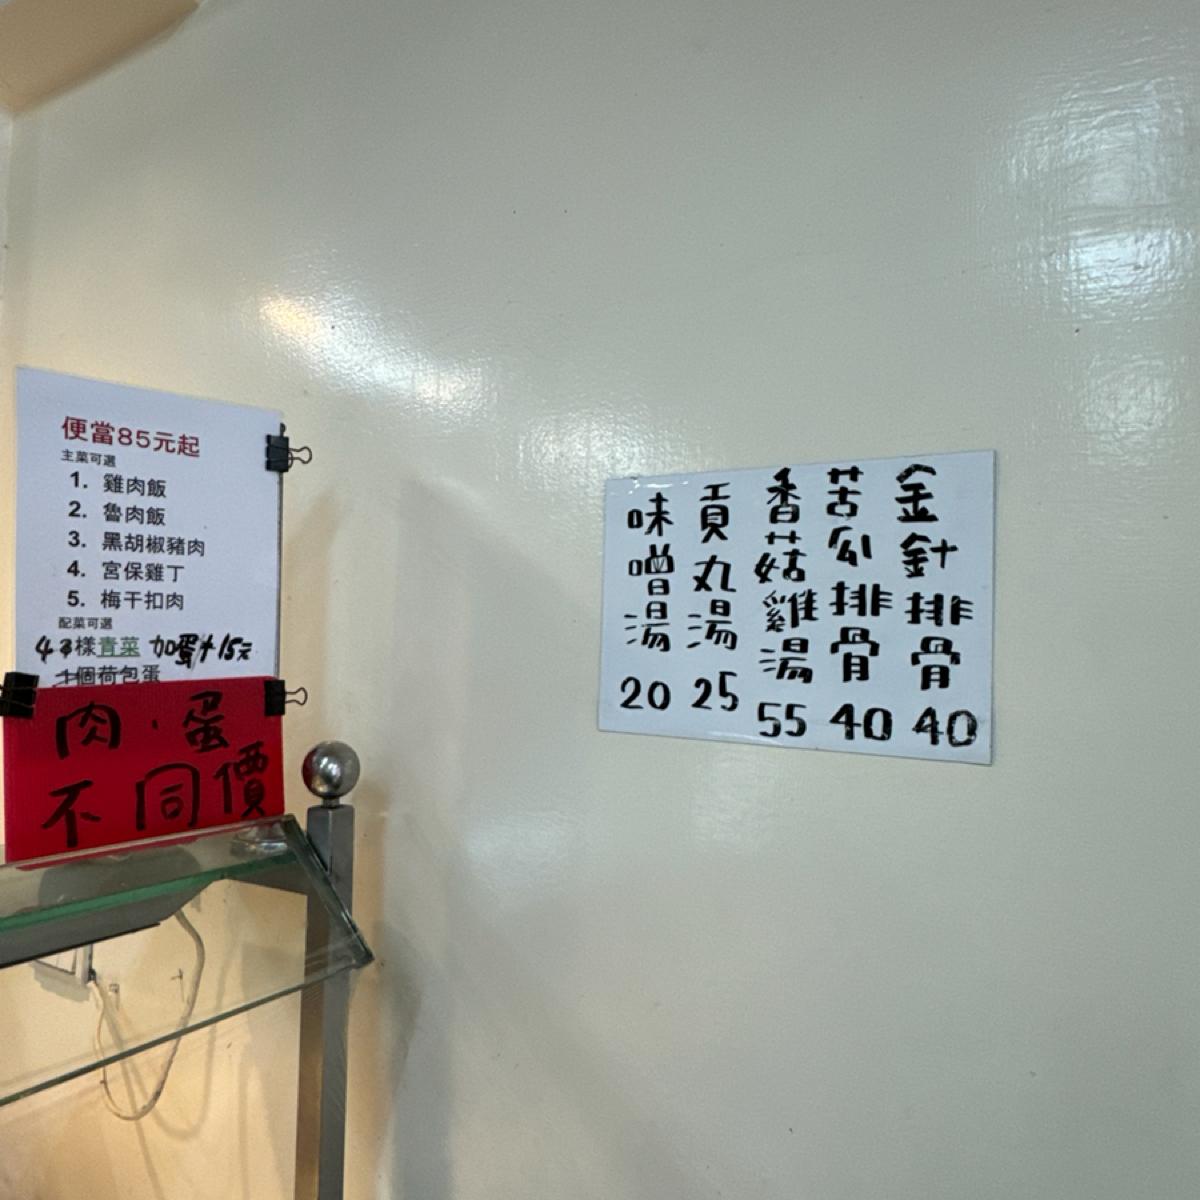 便當85元起
主菜可選
1. 雞肉飯
2. 魯肉飯
3. 黑胡椒豬肉
4. 宮保雞丁
5. 梅干扣肉
配菜可選
4 3樣青菜 加蛋+15元
1個荷包蛋
肉.蛋
不同價
金針排骨 40
苦瓜排骨 40
香菇雞湯 55
貢丸湯 25
味噌湯 20